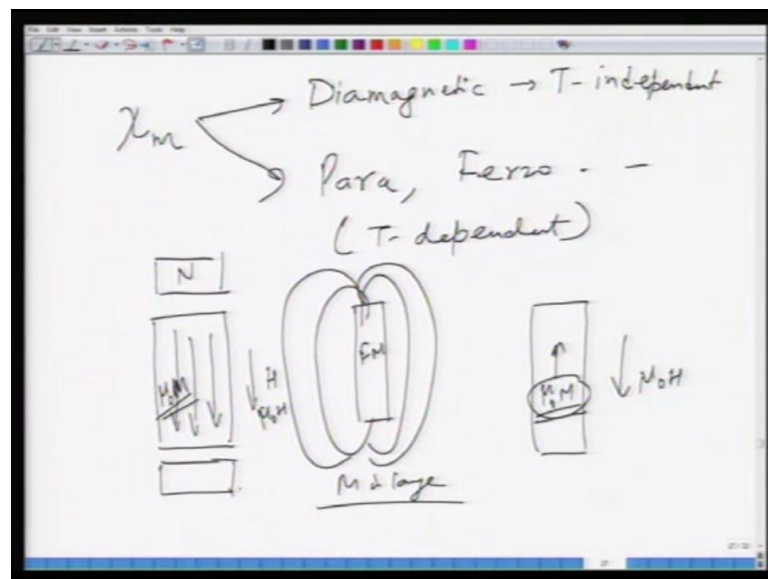 File Edit View Insert Actions Tools Help
χm
Diamagnetic → T-independent
Para, Ferro - -
(T-dependent)
N
μ₀M
H
μ₀H
FM
M is large
μ₀M
μ₀H